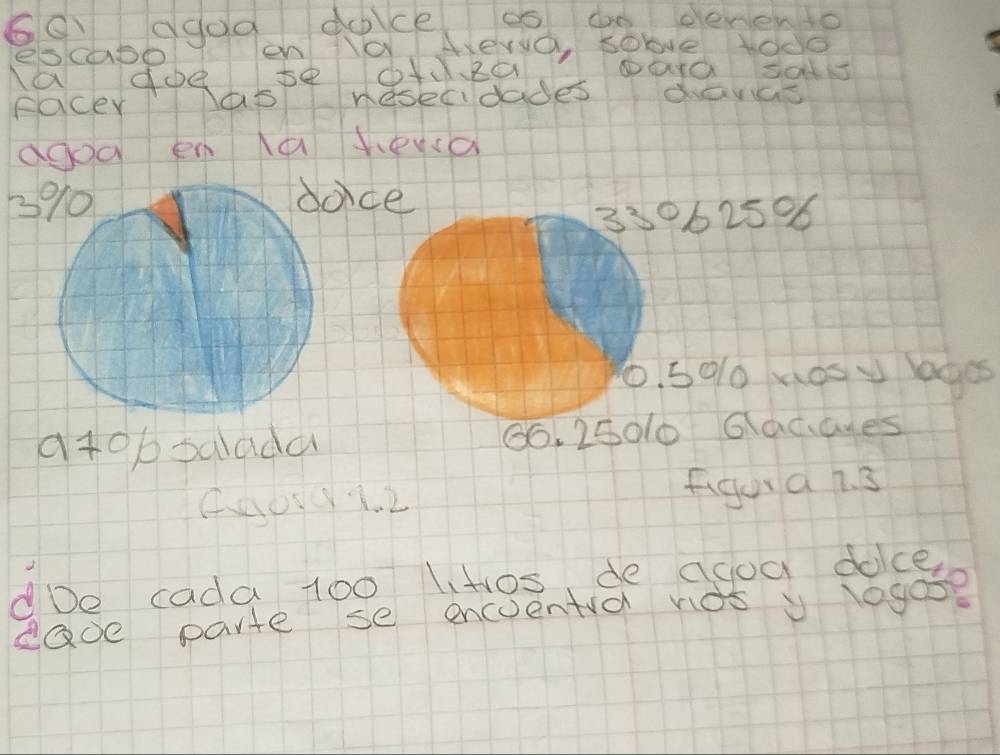 6 El agua dulce es un elemento
escaso en la tierra, sobre todo
la que se utiliza para satis
facer las nesecidades diarias
agua en la tierra
3% dulce
33% 25%
0.5% rios y lagos
97% salada
66.25% Glaciares
figura 1.2
figura 1.3
¿De cada 100 litros de agua dulce,
¿que parte se encuentra rios y lagos?